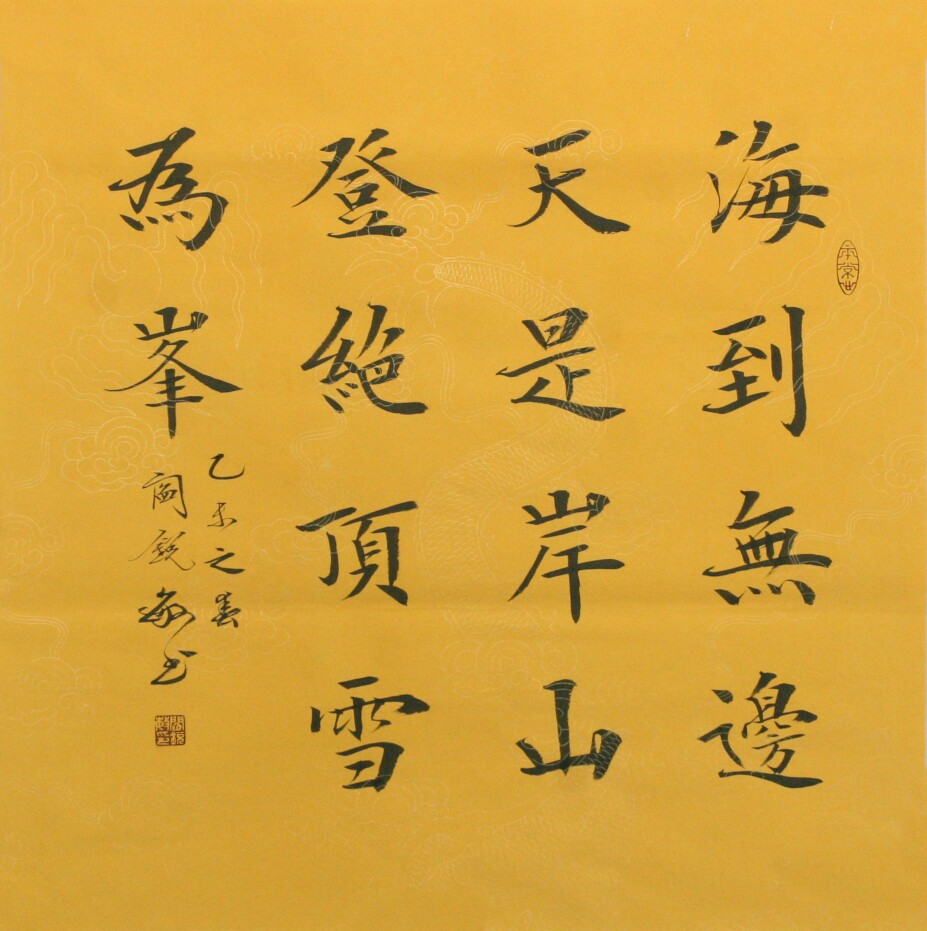 海到無邊
天是岸山
登絶頂雪
為峯
乙未之春
閻鋭敏书